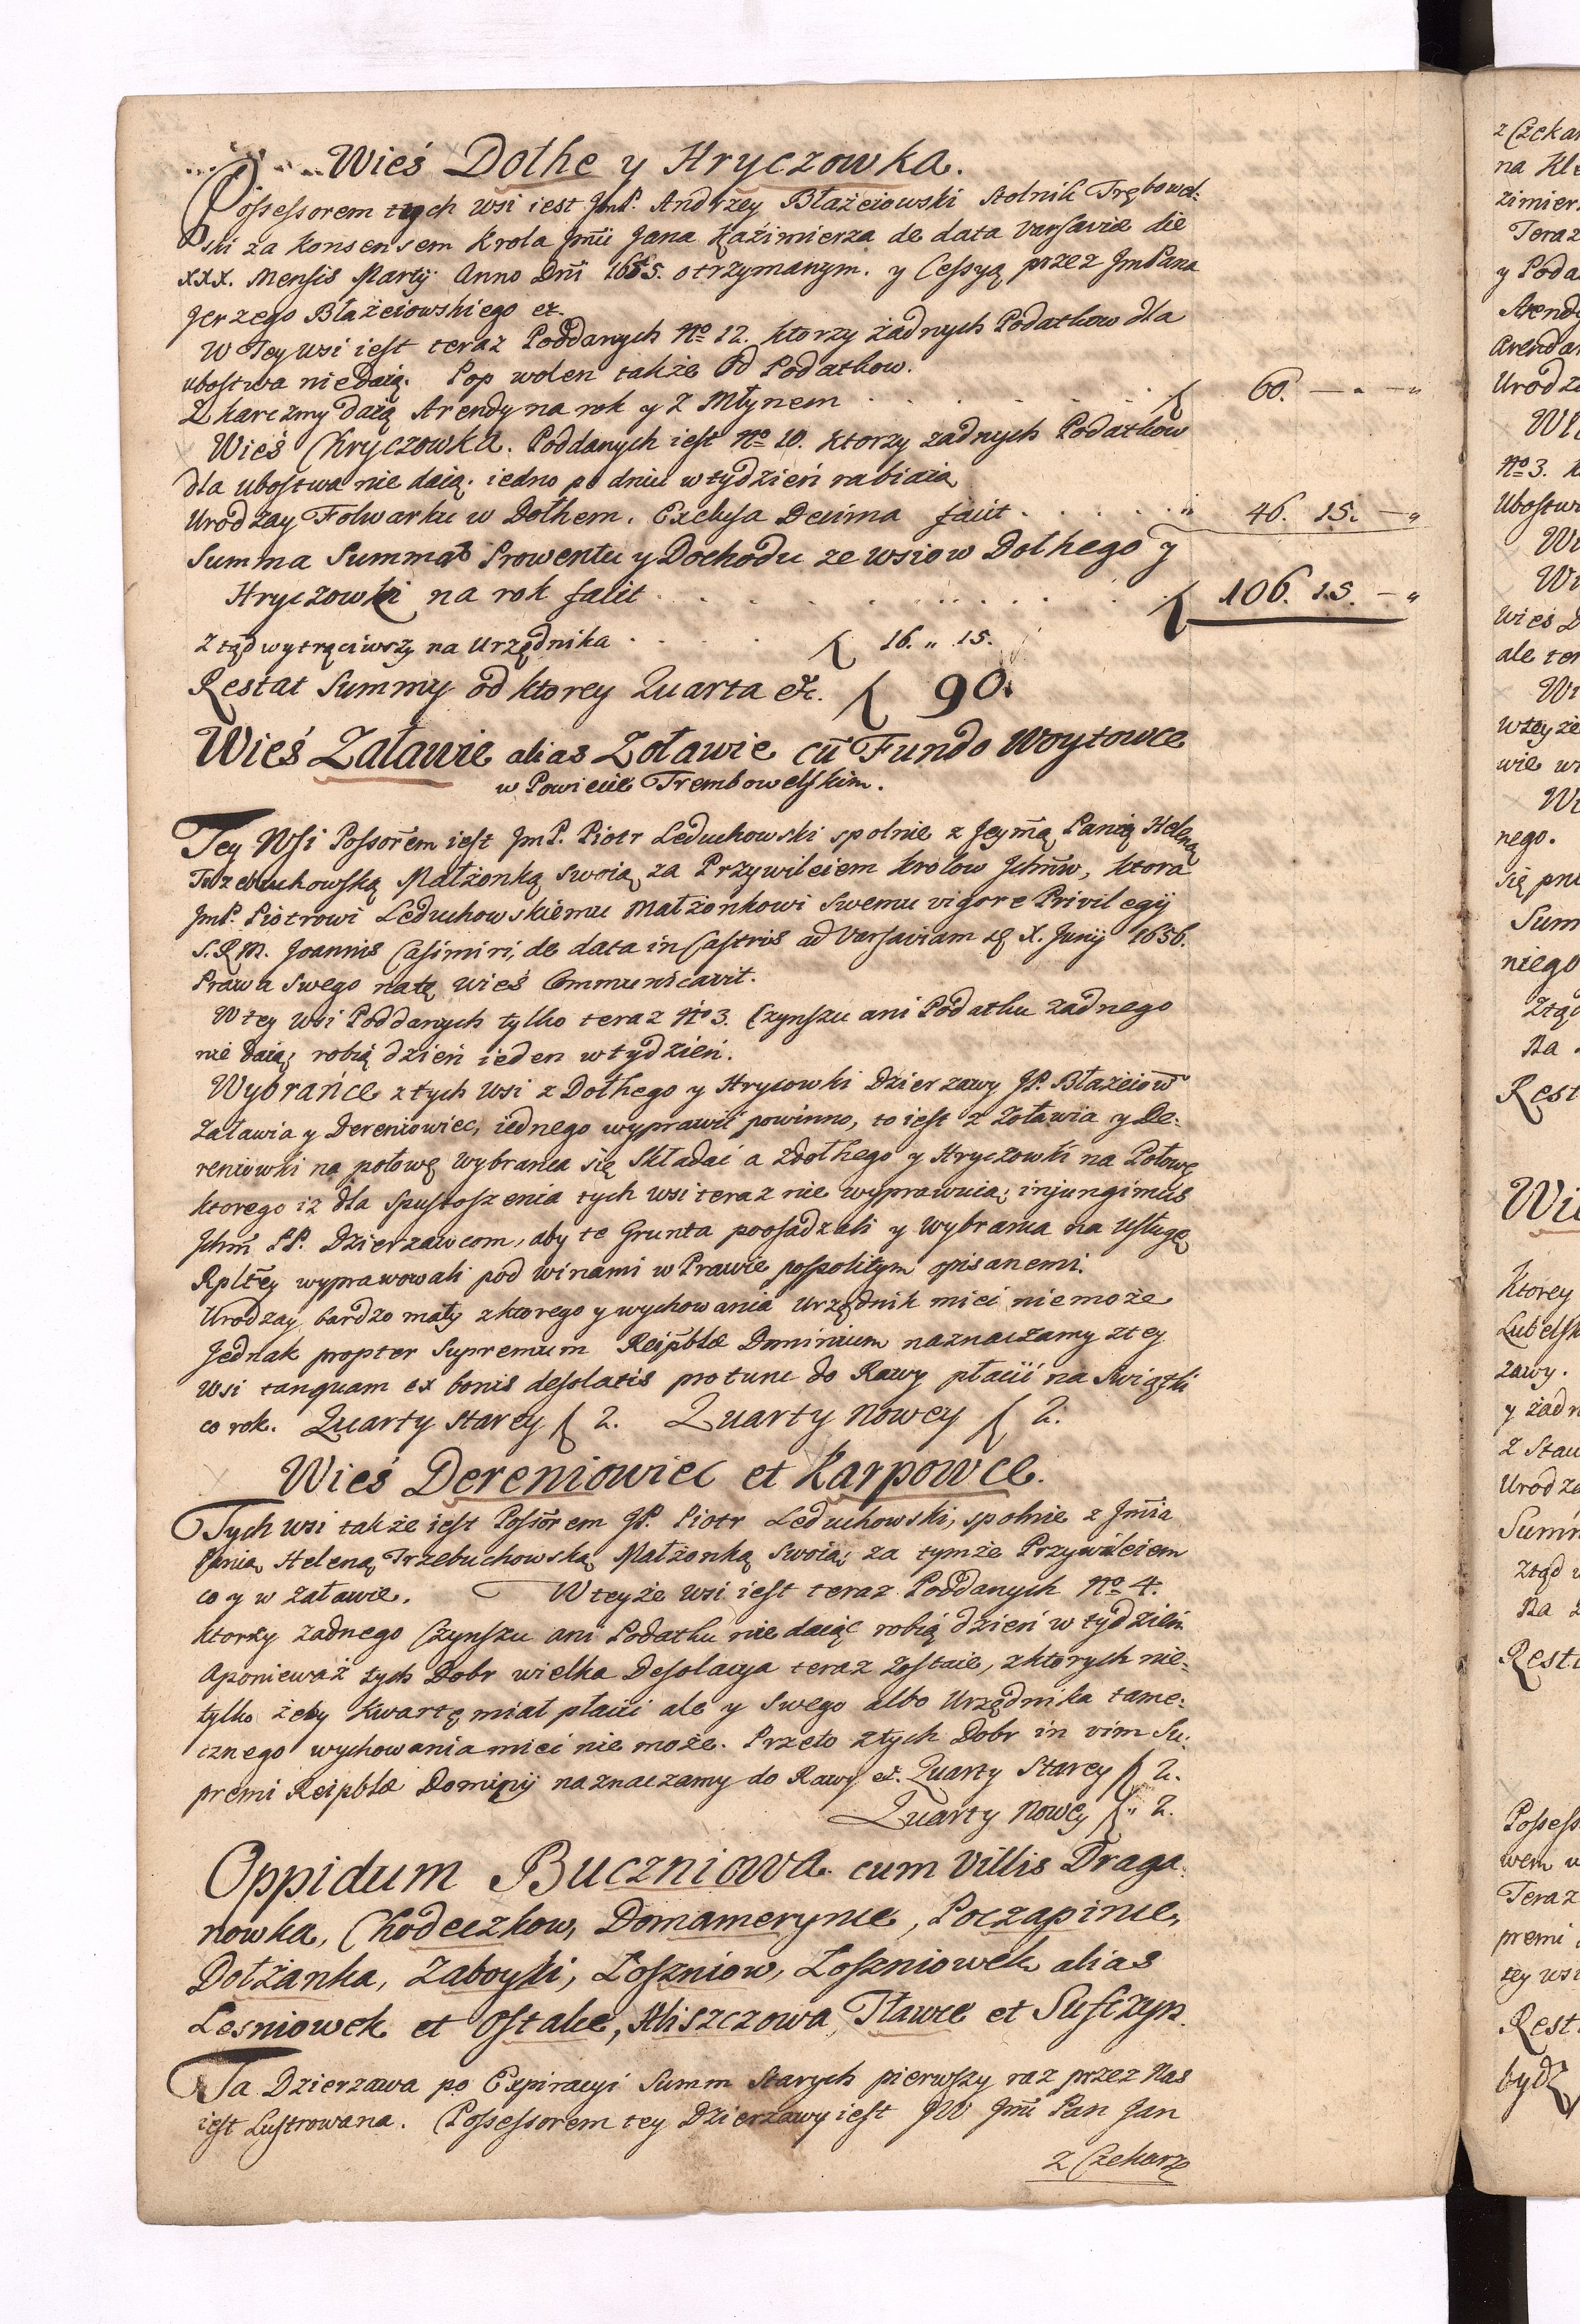 Wieś Dolhe y Hryczowka.
Possessorem tych wsi iest JmP. Andrzey Błażeiowski Stolnik Trębowel:
ski za Konsensem Krola Jmći Jana Kaźimierza de data Varsaviæ die
xxx. Mensis Martÿ Anno Dnĩ 1655. otrzymanym. y Cessyą przez JmPana
Jerzego Błażeiowskiego etc.
W Tey wsi iest teraz Poddanych No 12. ktorzy żadnych Podatkow dla
ubostwa niedaią. Pop wolen także Od Podatkow.
Z karczmy daią Arendy na rok y z Młynem . . . . . . f 60. — " — "
Wieś Chryczowka. Poddanych iest No 10. Ktorzy zadnych Podatkow
dla ubostwa nie daią. iedno po dniu w tydzień rabiaią
Urodzay Folwarku w Dołhem. Exclusa Decima facit . . . . . " 46. 15. — "
Summa Summar Prowentu y Dochodu ze wsiow Dolhego y
Hryczowki na rok facit . . . . . . . . f 106. 15. — "
Ztąd wytrąciwszy na Urzędnika . . . . . f 16. " 15.
Restat Summy od ktorey Quarta etc. f 90.
Wieś Załawie alias Zoławie cū Fundo Woytowce
w Powiecie Trembowelskim.
Tey Wsi Possorem iest JmP. Piotr Leduchowski spolnie z Jeymą Panią Heleną
Trzebuchowską Małżonką swoią za Przywileiem Krolow Jchmw, ktora
JmP. Piotrowi Leduchowskiemu Małżonkowi Swemu vigore Privilegÿ
S.R.M. Joannis Casimiri, de data in Castris ad Varsaviam d. X. Junÿ 1656.
Prawa Swego natę wieś Communicavit.
W tey wsi Poddanych tylko teraz No 3. Czynszu ani Podatku zadnego
nie daią; robią dzień ieden w tydzień.
Wybrańce z tych Wsi z Dołhego y Hrycowki Dzierzawy JP. Błażeiow
Załawia y Dereniowiec, iednego wyprawić powinno, to iest z Zoławia y De:
reniowki na połowę Wybrańca się składać a zdołhego y Hryczowki na Połowę
ktorego iz dla Spustoszenia tych wsi teraz nie wyprawuią; injungimus
Jchm PP. Dzierzawcom, aby te Grunta poosadzali y Wybrańca na Usługę
Rpltey wyprawowali pod winami w Prawie pospolitym opisanemi.
Urodzay bardzo mały z ktorego y wychowania Urzędnik mieć niemoże
Jednak propter Supremum Reipblæ Dominium naznaczamy ztey
Wsi tanquam ex bonis desolatis protunc do Rawy płacić na Swiątki
co rok. Quarty Starey f 2. Quarty Nowey f 2.
Wieś Dereniowiec et Karpowce.
Tych wsi także iest Possorem JP. Piotr Leduchowski, spolnie z Jmcia
Panią Heleną Trzebuchowską Małżonką Swoią; za tymże Przywileiem
co y w Załawie. W teyże wsi iest teraz Poddanych No 4.
ktorzy zadnego Czynszu ani Podatku nie daiąc robią dzień w tydzień
Aponieważ tych Dobr wielka Desolacya teraz zostaie, z ktorych nie=
tylko żeby Kwartę miał płacić ale y Swego albo Urzędnika tame:
cznego wychowania mieć nie może. Przeto z tych Dobr in vim Su:
premi Reipblæ Dominÿ naznaczamy do Rawy etc. Quarty Starey f 2.
Quarty Nowey f " 2.
Oppidum Buczniowa cum Villis Draga
nowka, Chodeczkow, Domamerynce, Poczapince,
Dołżanka, Zaboyki, Łoszniow, Łoszniowek alias
Lesniowek et Ostalce, Kliszczowa Tławce et Susczyn.
Ta Dzierzawa po Expiracyi Summ Starych pierwszy raz przez Nas
iest Lustrowana. Possessorem tey Dzierzawy iest JW Jmć Pan Jan
z Czekarz